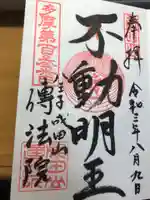 奉拝
令和三年八月九日
不動明王
多摩第百三番
八王子成田山
傳法院